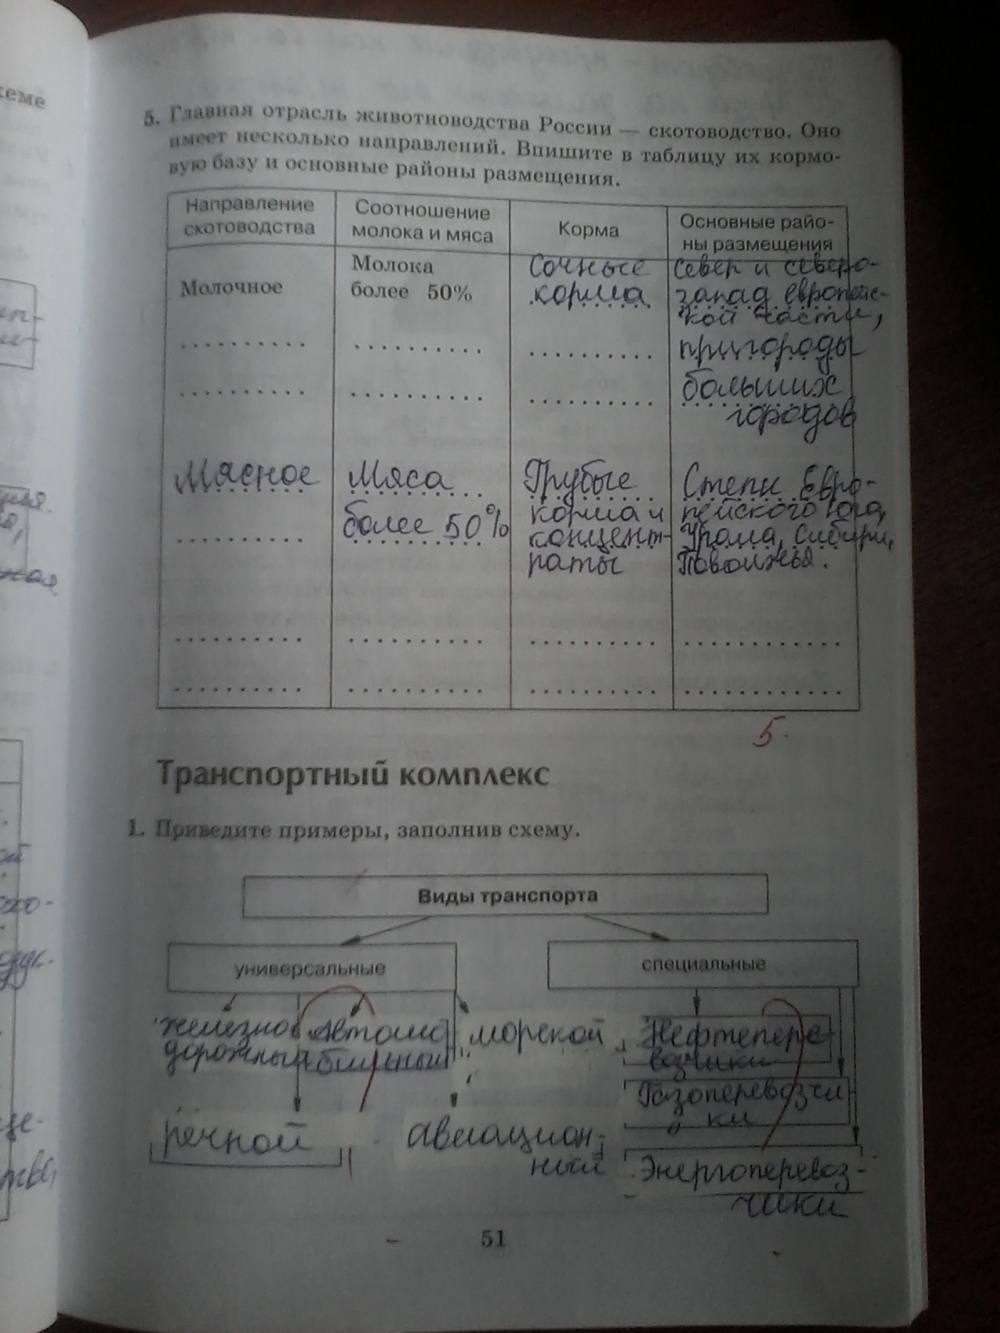 хеме
5. Главная отрасль животноводства России — скотоводство. Оно
имеет несколько направлений. Впишите в таблицу их кормо-
вую базу и основные районы размещения.
Направление
скотоводства
Соотношение
молока и мяса
Корма
Основные райо-
ны размещения
Молочное
Молока
более 50%
Сочные
корма
Север и северо-
запад европейс-
кой части,
пригороды
больших
городов
Мясное
Мяса
более 50%
Грубые
корма и
концент-
раты
Степи Евро-
пейского юга,
Урала, Сибири,
Поволжья.
5.
Транспортный комплекс
1. Приведите примеры, заполнив схему.
Виды транспорта
универсальные
специальные
железно
дорожный
автомо
бильный
морской
Нефтепере-
возчики
Газоперевозчи
ки
речной
авиацион-
ный
Энергоперевоз-
чики
51